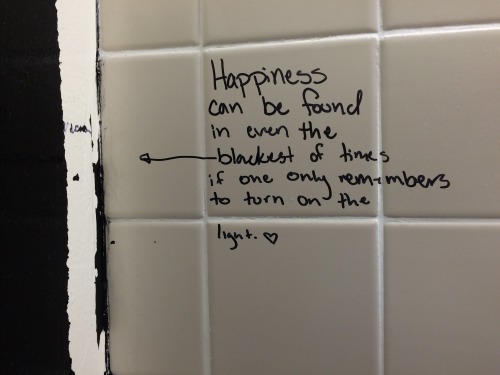 Happiness
can be found
in even the
blackest of times
if one only remembers
to turn on the
light. ♡